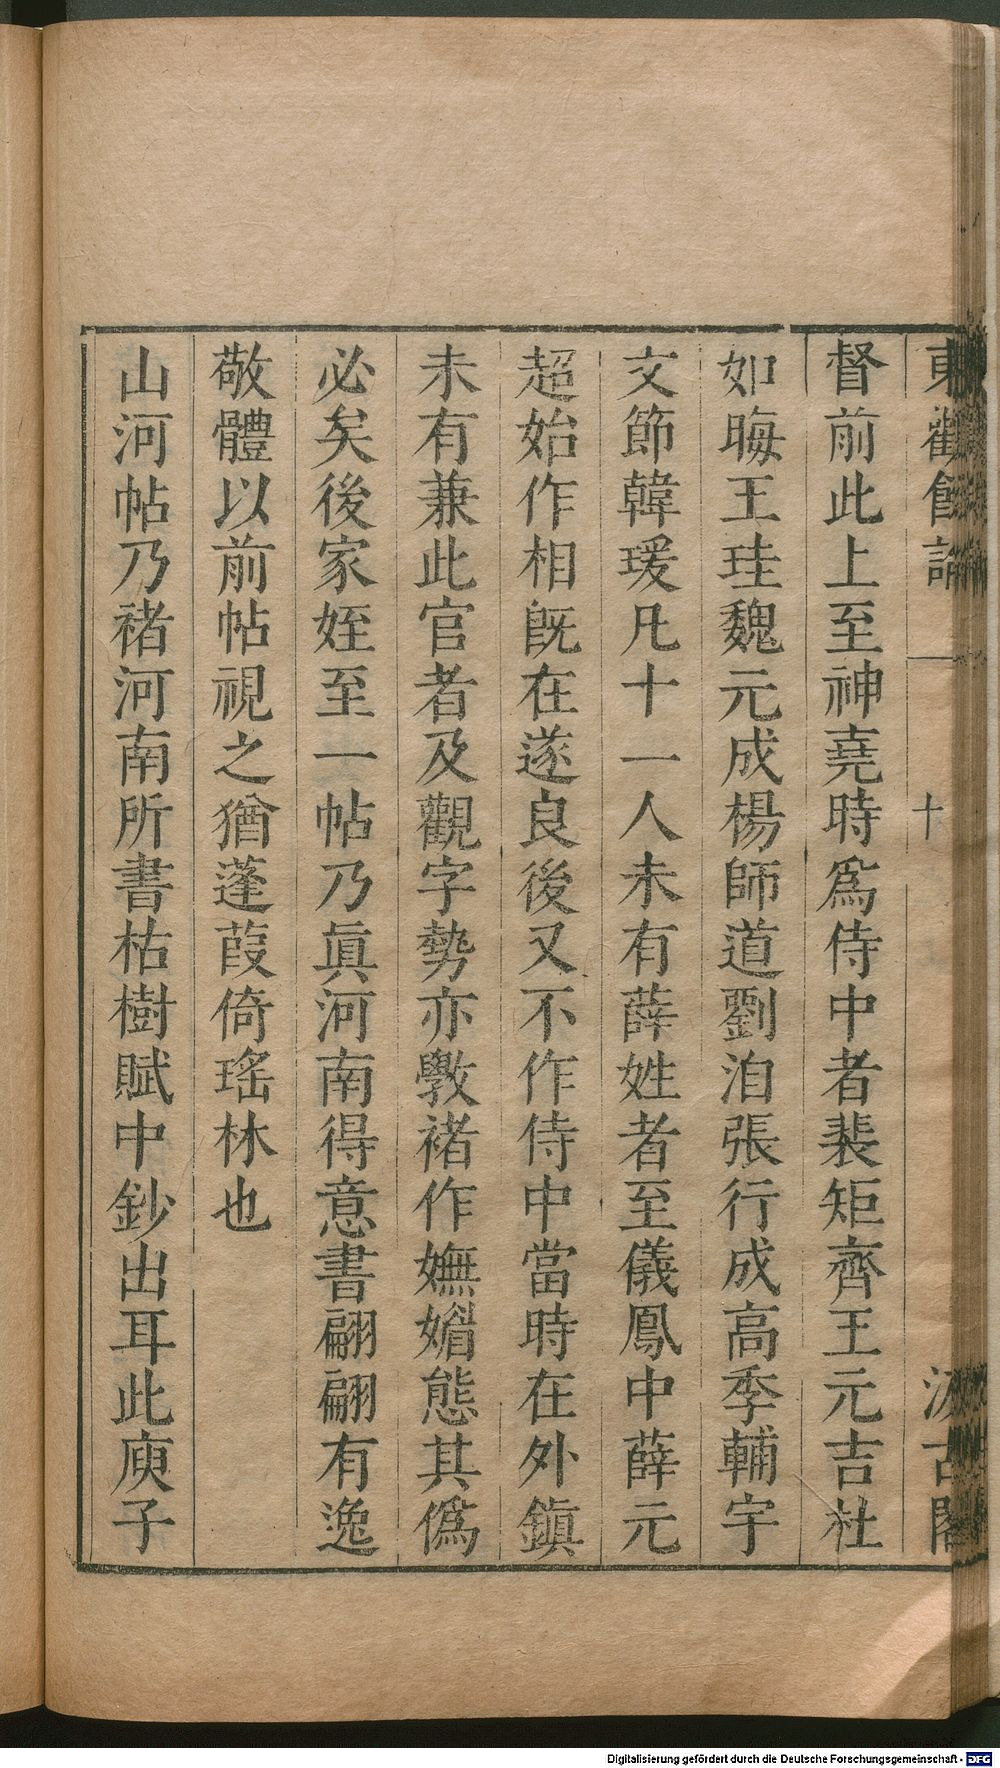 東觀餘論 一 十 汲古閣
督前此上至神堯時爲侍中者裴矩齊王元吉杜
如晦王珪魏元成楊師道劉洎張行成高季輔宇
文節韓瑗凡十一人未有薛姓者至儀鳳中薛元
超始作相旣在遂良後又不作侍中當時在外鎮
未有兼此官者及觀字勢亦斆褚作嫵媚態其僞
必矣後家姪至一帖乃眞河南得意書翩翩有逸
敬體以前帖視之猶蓬葭倚瑤林也
山河帖乃褚河南所書枯樹賦中鈔出耳此庾子
Digitalisierung gefördert durch die Deutsche Forschungsgemeinschaft - DFG